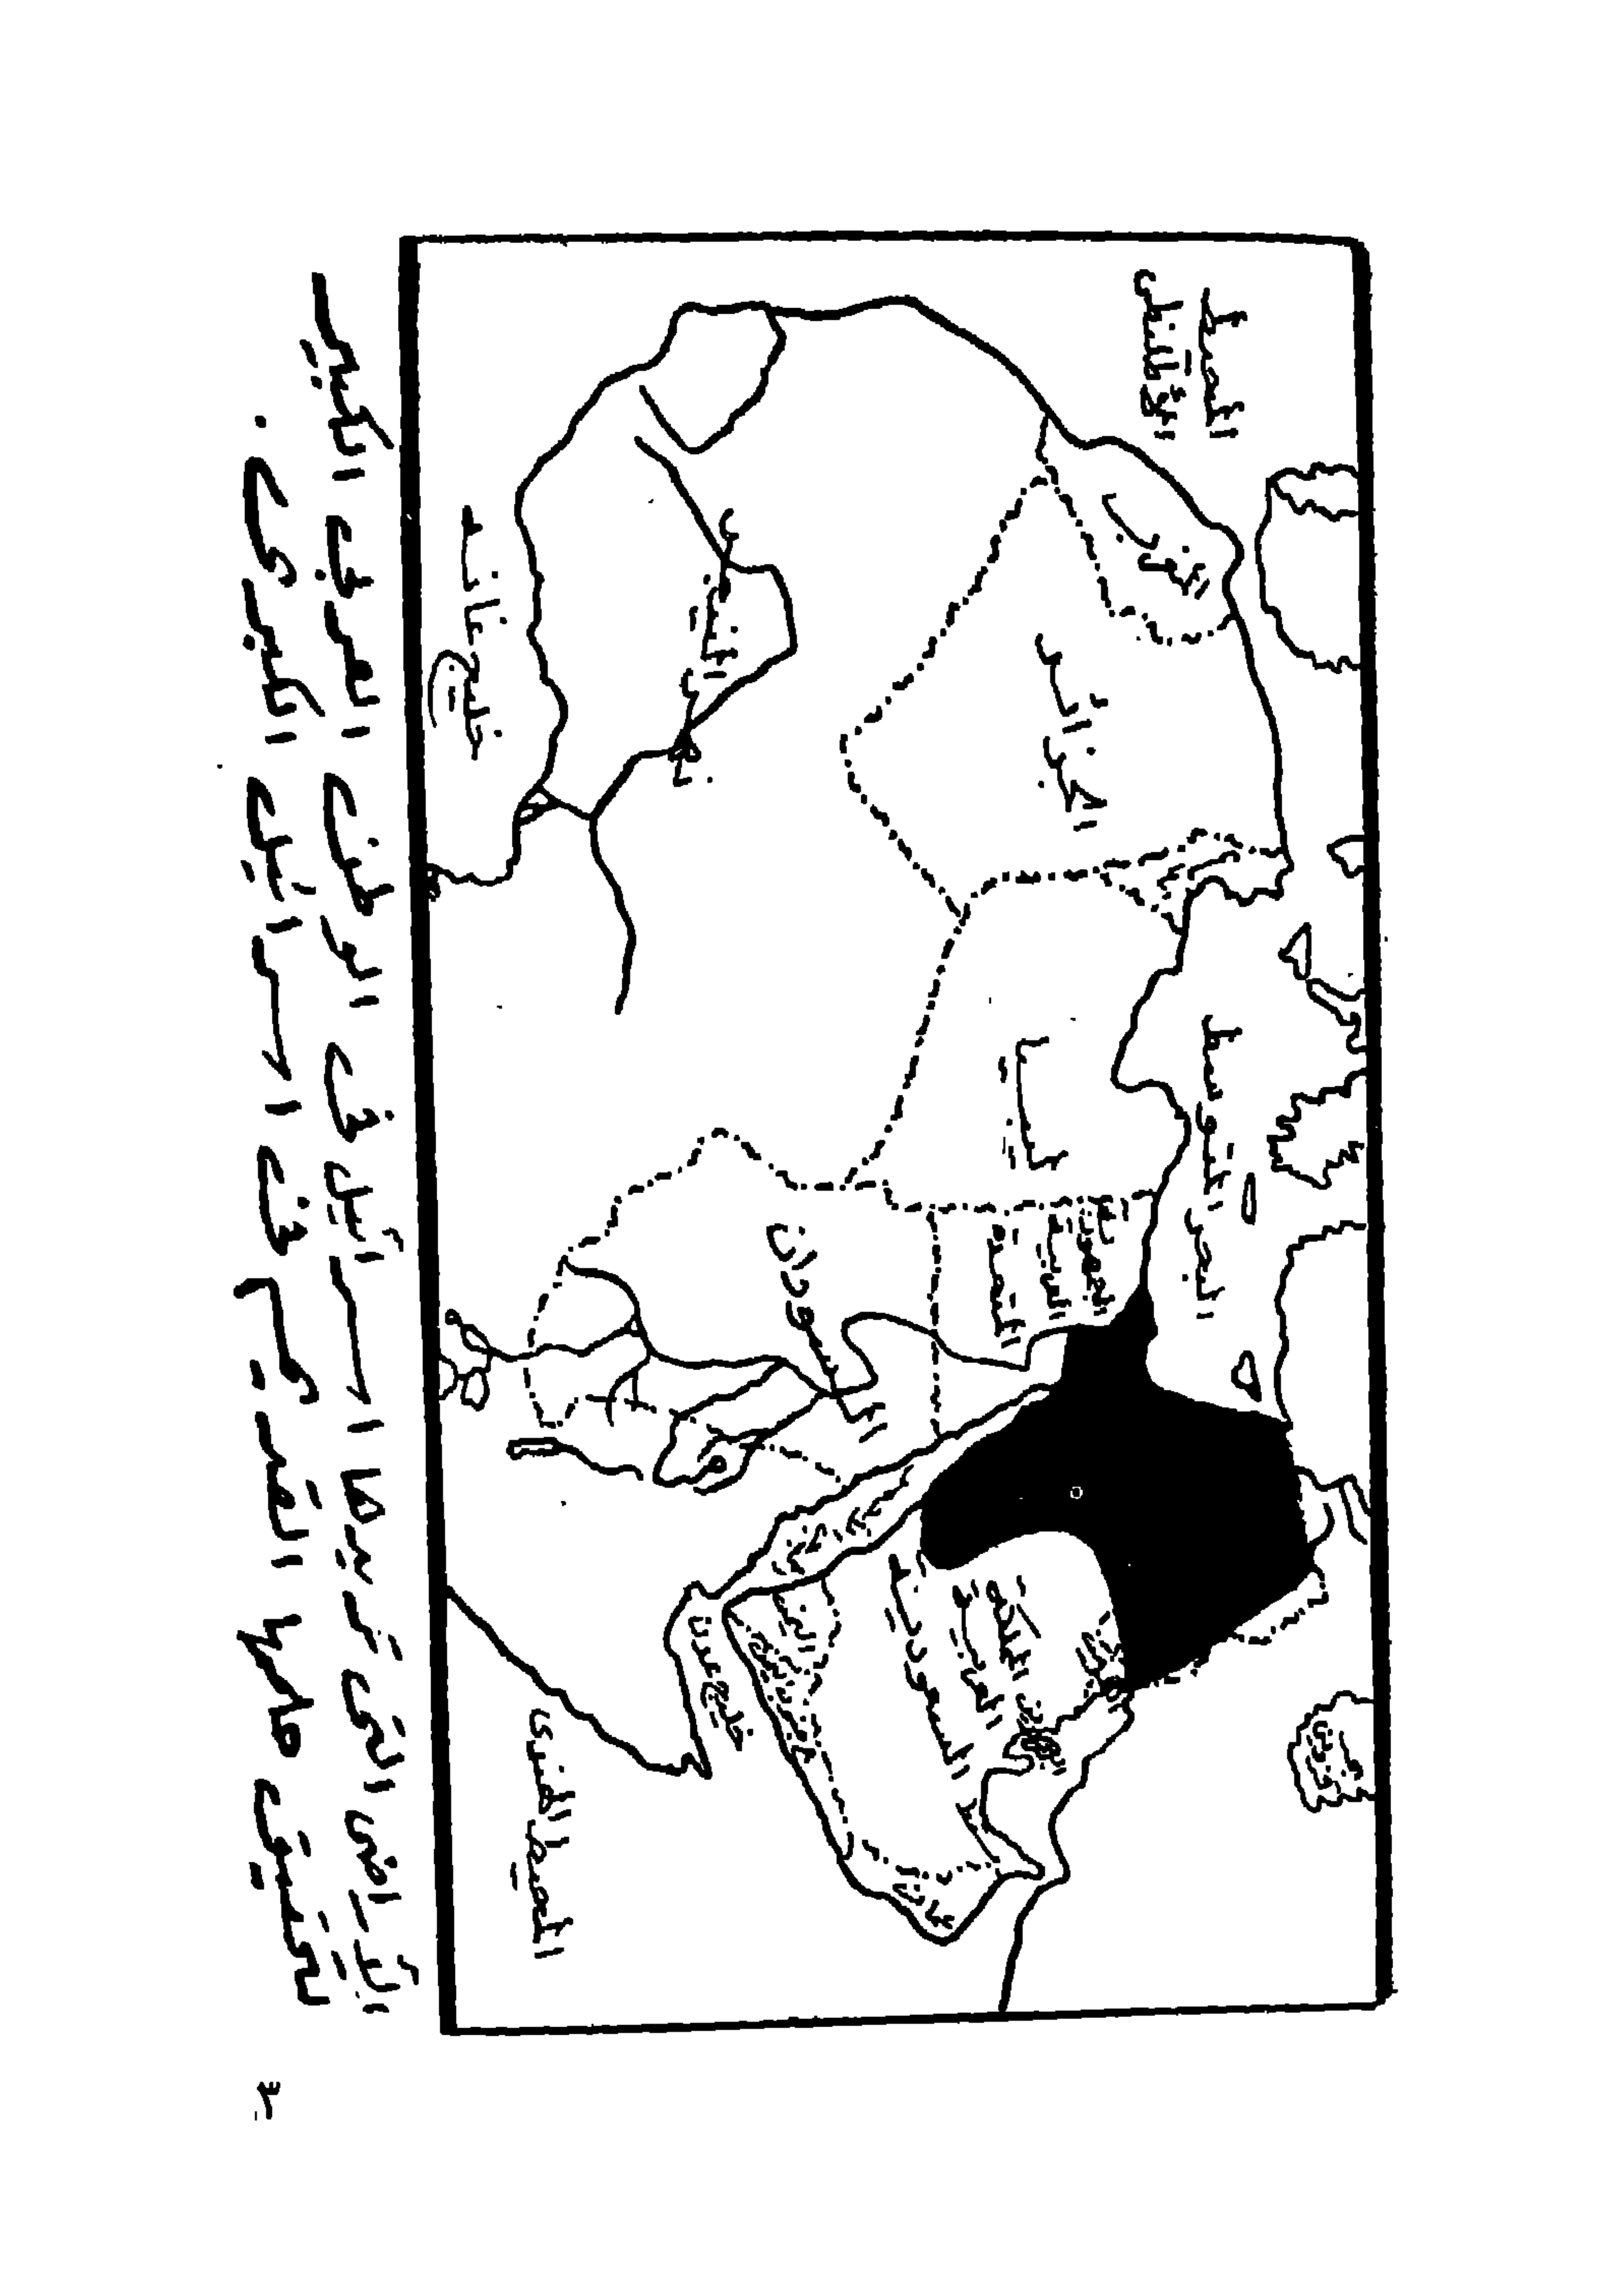 المحيط
الأطلنطى
بحر قزوين
المغرب
الجزائر
البحر المتوسط
ليبيا
الجمهورية
العربية
المتحدة
المملكة
العربية
السعودية
السودان
نهر النيجر
خليج عدن
خليج غانه
المحيط الهندى
الأراضى التى تريدها اسرائيل فى الوطن العربى الكبير
لتحقيق حلمها القديم فى اسرائيل الكبرى .